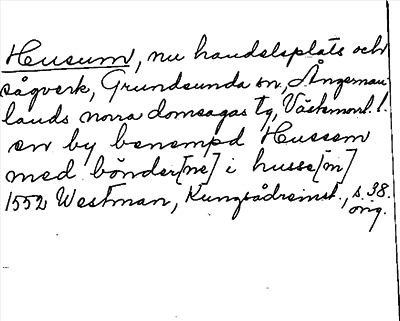 Husum, nu handelsplats och
sågverk, Grundsunda sn, Ångerman
lands norra domsagas tg, Västernorrl. l.
en by benempd Hussem
med bönder[ne] i husse[m]
1552 Westman, Kungsådreinst., s. 38.
orig.